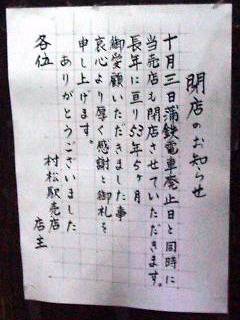 閉店のお知らせ
十月三日蒲鉄電車廃止日と同時に
当売店も閉店させていただきます。
長年に亘り53年5ヶ月
御愛顧いただきました事
衷心より厚く感謝と御礼を
申し上げます。
ありがとうございました
村松駅売店
店主
各位